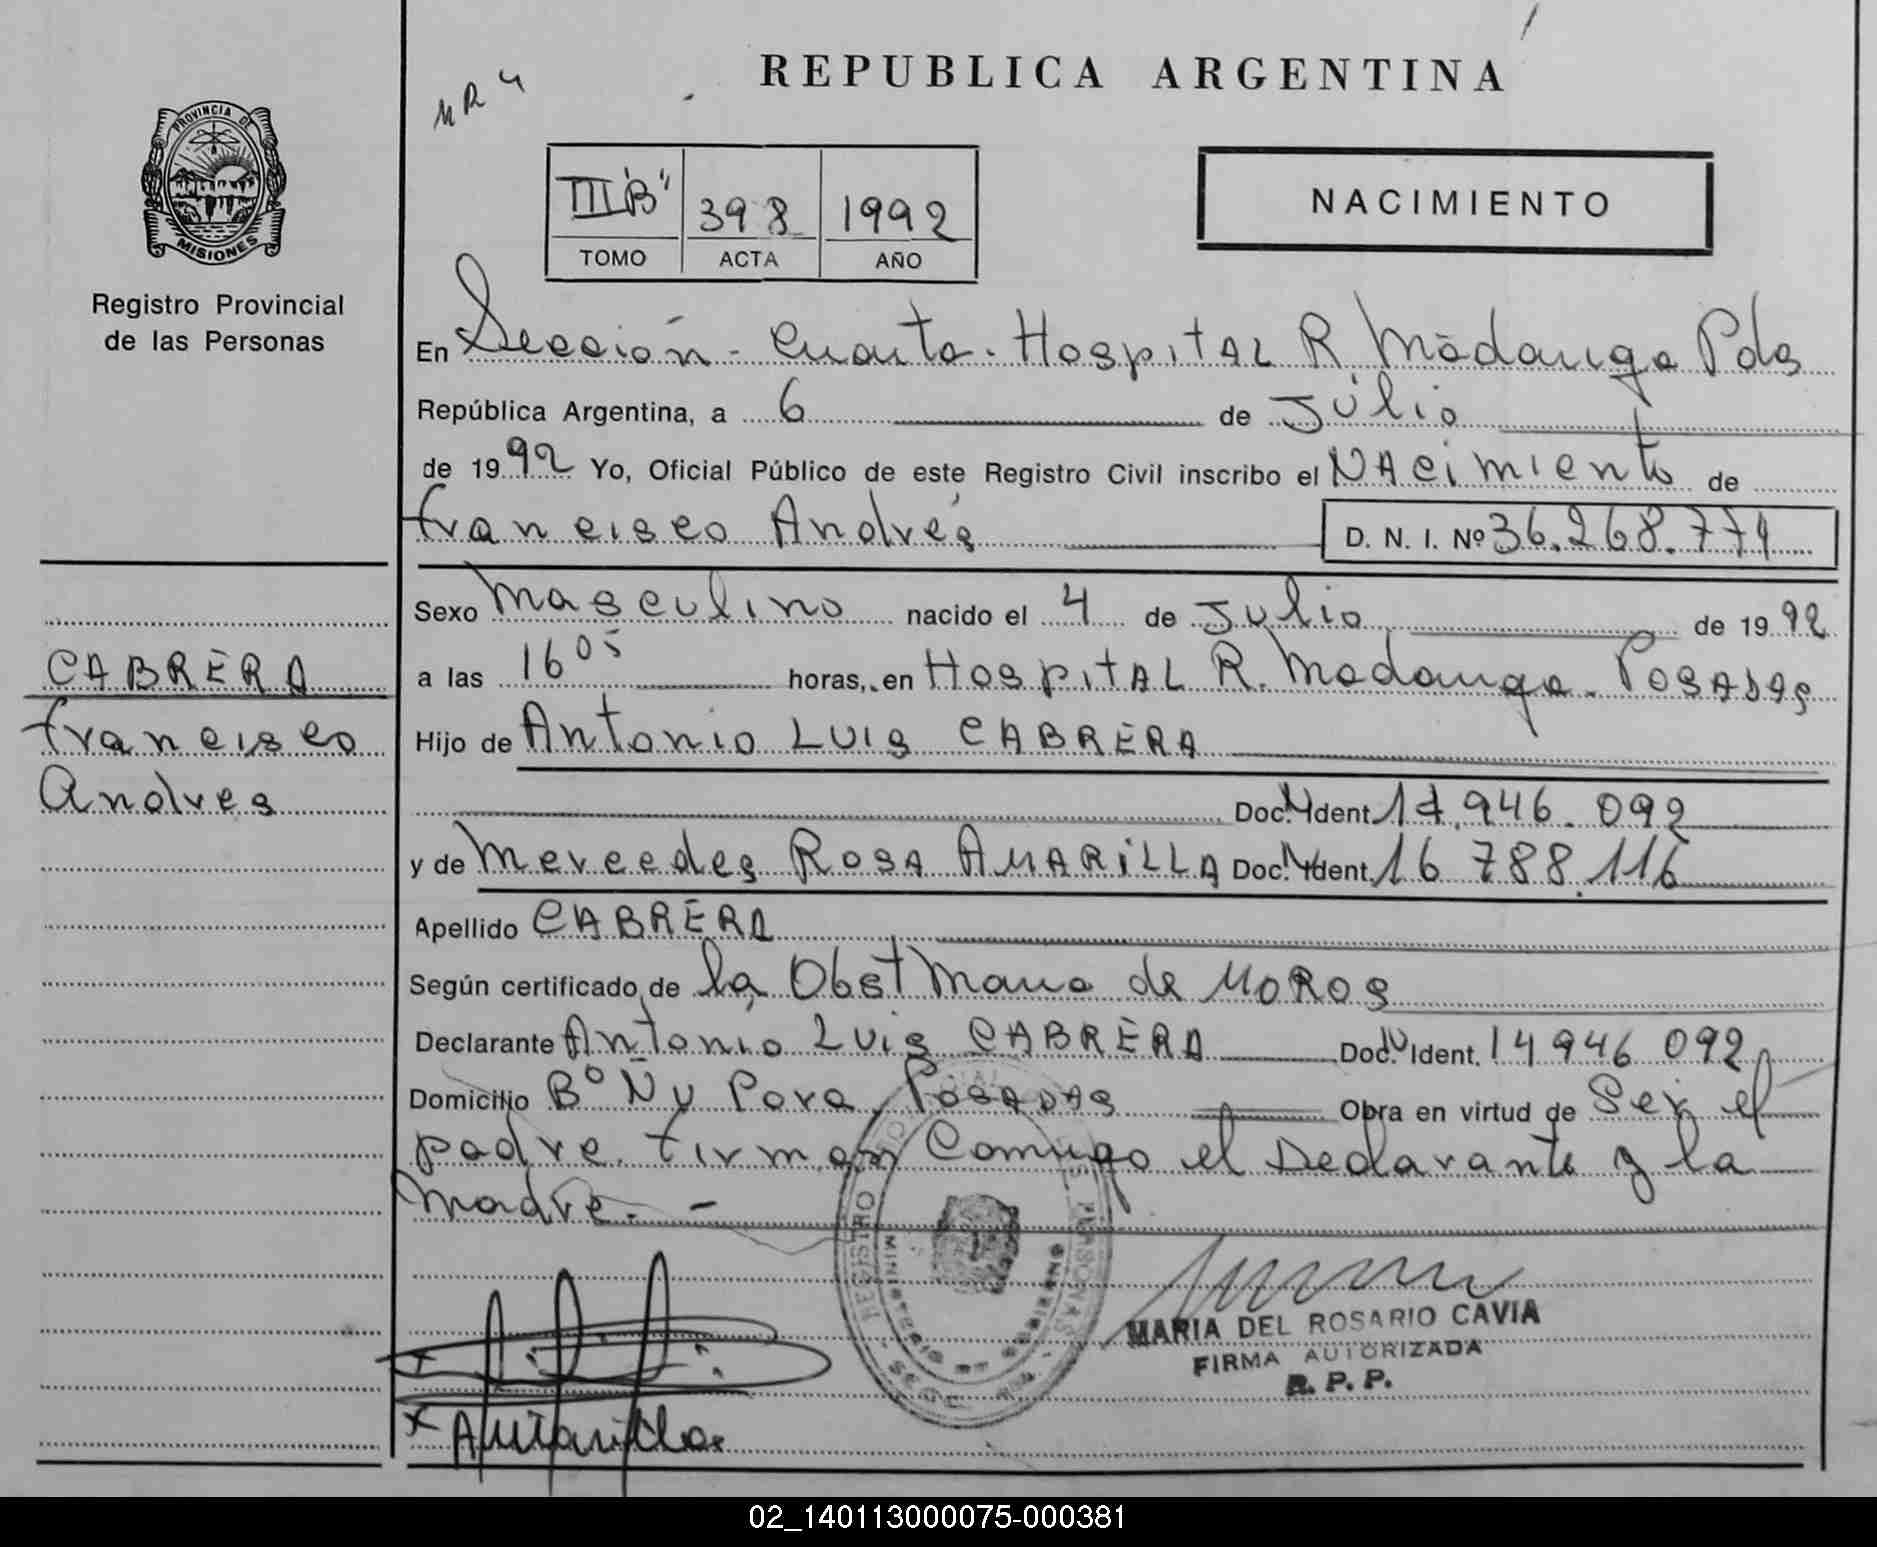 REPUBLICA ARGENTINA
PROVINCIA DE
MISIONES
Registro Provincial
de las Personas
III "B" 398 1992
TOMO ACTA AÑO
NACIMIENTO
En Sección - Cuarta - Hospital R Madariaga Pdas
República Argentina, a 6 de Julio
de 1992 Yo, Oficial Público de este Registro Civil inscribo el NAcimiento de
francisco Andrés D. N. I. Nº 36.268.774
Sexo Masculino nacido el 4 de Julio de 1992
a las 16 05 horas, en HospitAL R. Madariaga - POSADAS
Hijo de Antonio LUIS CABRERA
Doc. N Ident. 14.946.092
y de Mercedes ROSA AMARiLLA Doc. N Ident. 16 788.116
Apellido CABRERA
Según certificado de la Obst Maria de MOROS
Declarante Antonio LUIS CABRERA Doc. N Ident. 14 946 092
Domicilio Bº Ñu Pora, POSADAS Obra en virtud de Ser el
padre. firman Conmigo el Declarante y la
Madre. -
CABRERA
francisco
Andres
MARIA DEL ROSARIO CAVIA
FIRMA AUTORIZADA
R. P. P.
x Amarilla
02_140113000075-000381